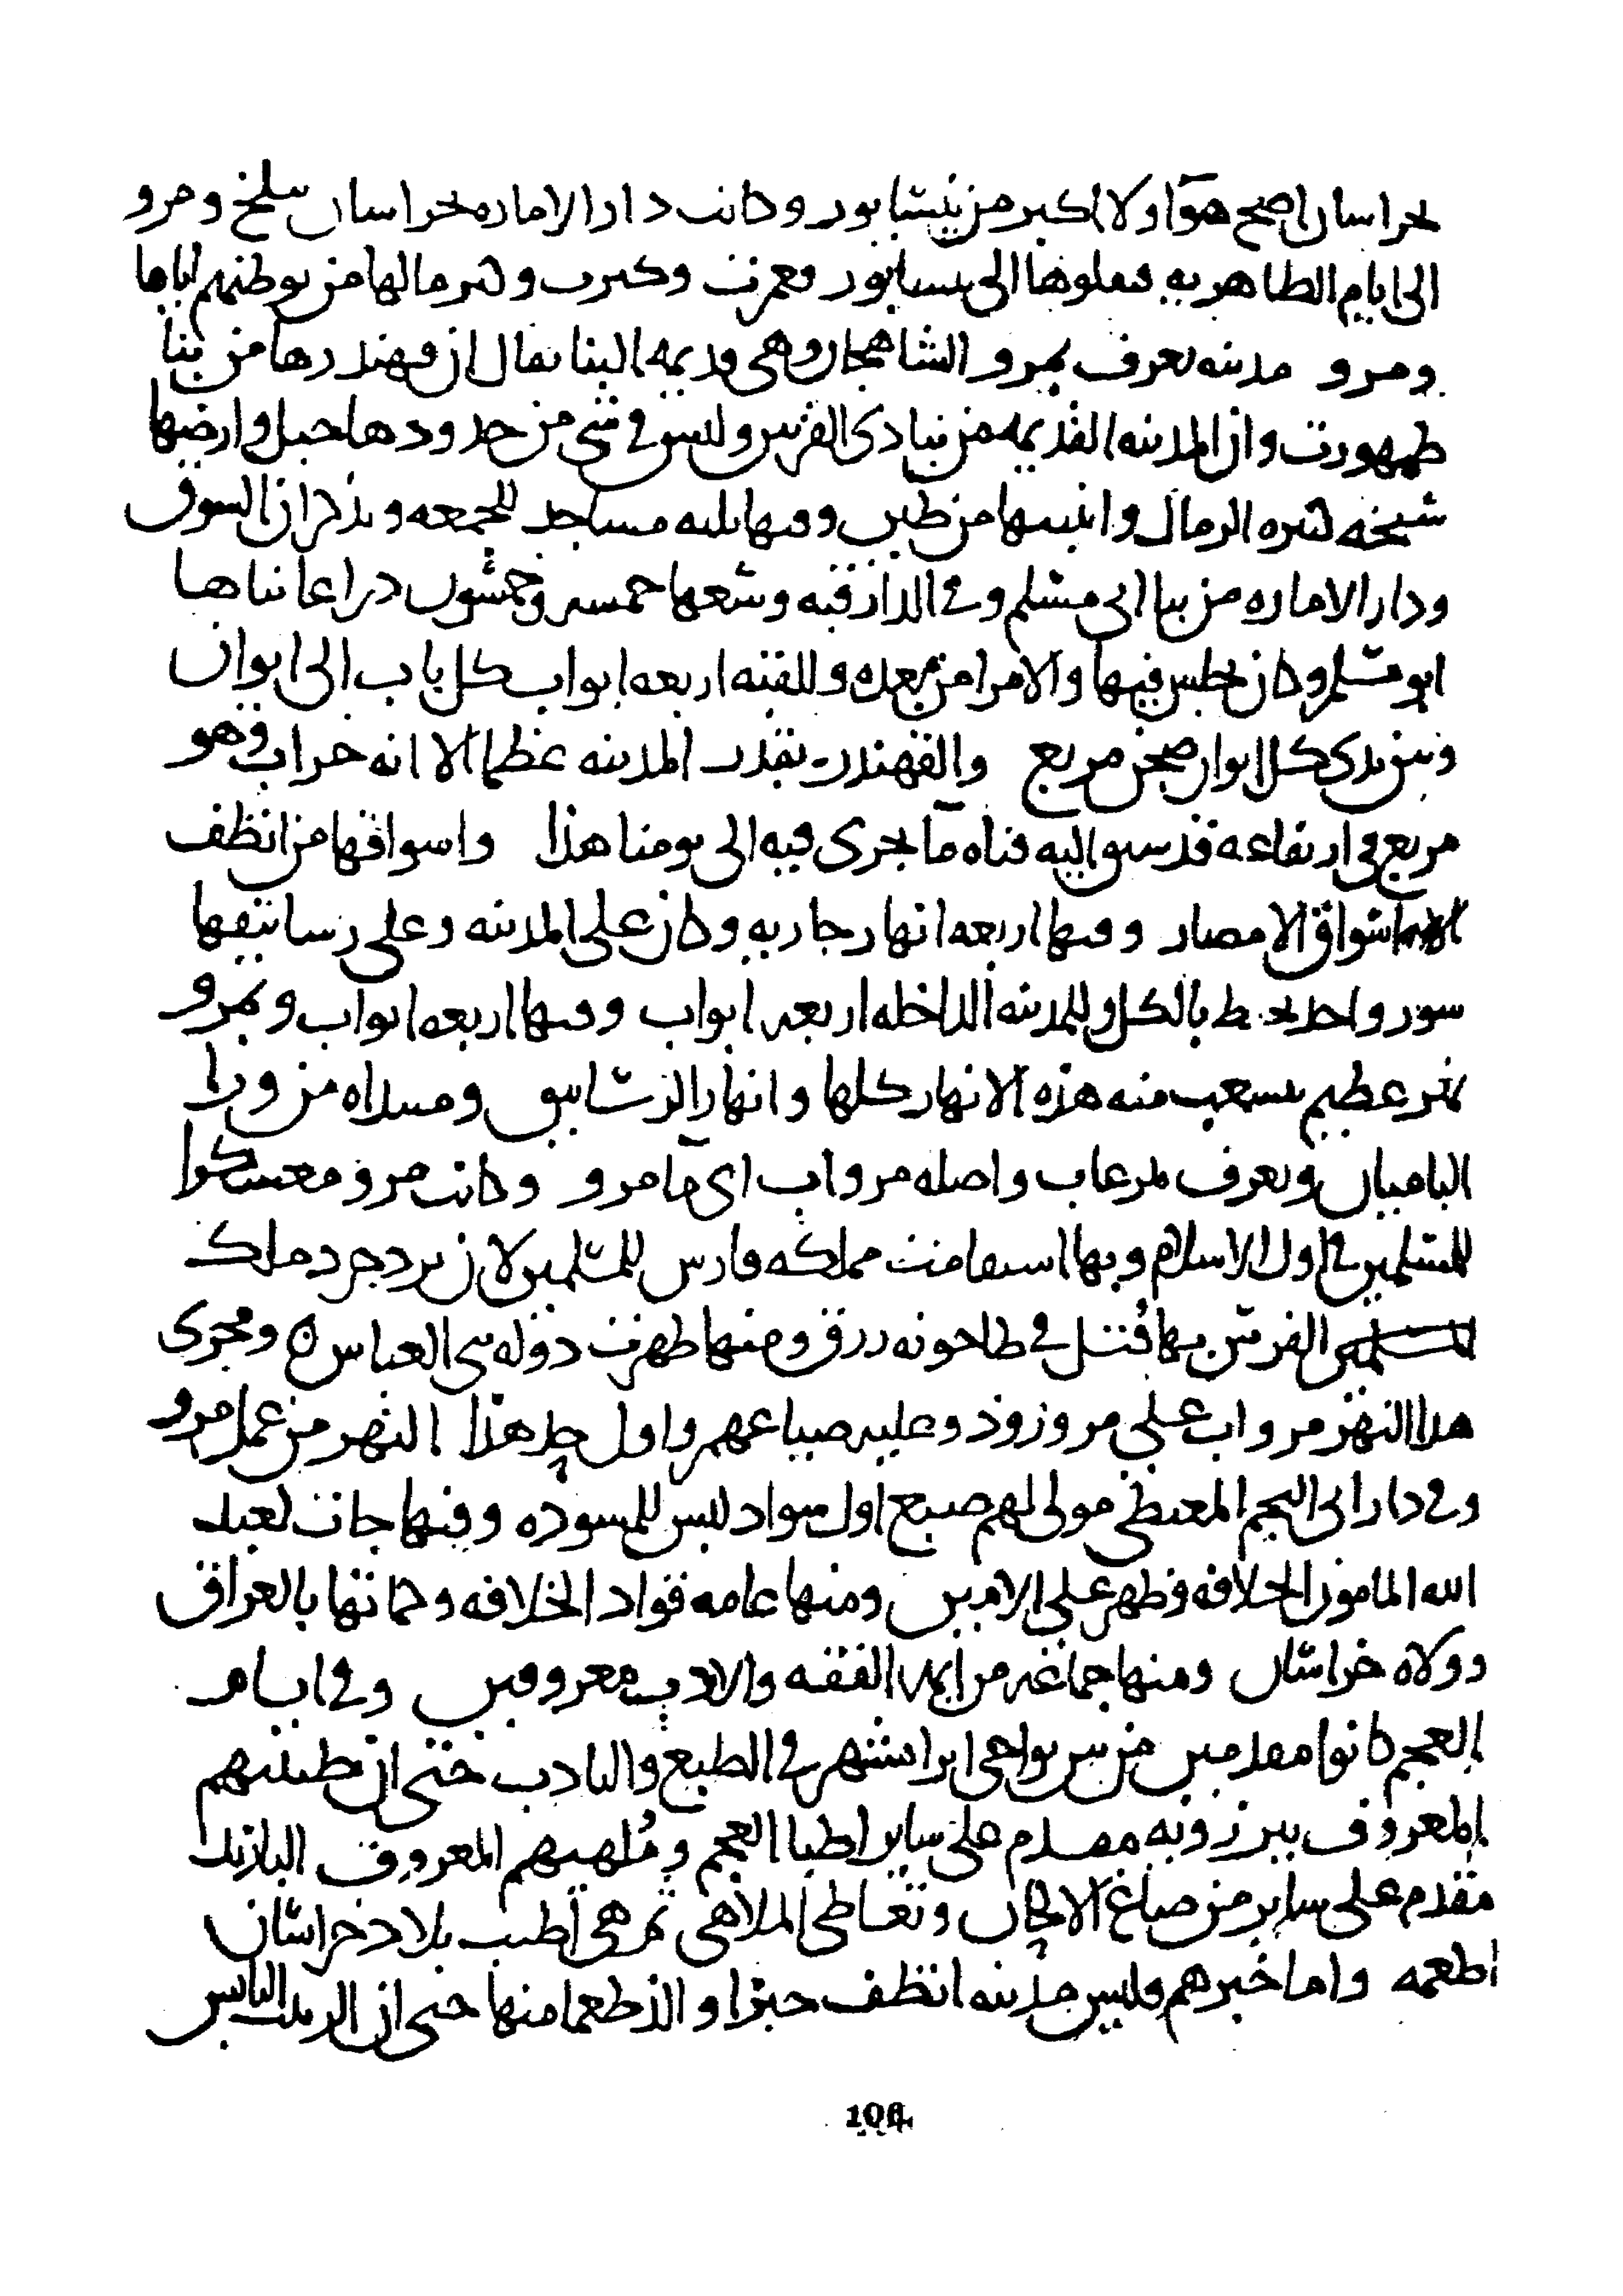 بخراسان اصح هوآ ولا اكبر من نيشابور وكانت دار الاماره بخراسان ببلخ ومرو
الى ايام الطاهريه فنقلوها الى نيسابور فعمرت وكبرت وكثر مالها من توطنهم اياها
ومرو مدينه تعرف بمرو الشاهجان وهى قديمه البنا يقال ان قهندرها من بنا
طهمورت وان المدينه القديمه من بنا ذى القرنين وليس فى شى من حدودها جبل وارضها
سبخه كثيره الرمال وابنيتها من طين وفيها ثلثه مساجد للجمعه ويذكر ان السوق
ودار الاماره من بنا ابى مسلم وفى الدار قبه وسعها خمسه وخمسون ذراعا بناها
ابو مسلم وكان يجلس فيها والامرا من بعده وللقبه اربعه ابواب كل باب الى ايوان
وبين يدى كل ايوان صحن مربع والقهندر بقدر المدينه عظما الا انه خراب وهو
مربع فى ارتفاعه قد سيق اليه قناه مآ يجرى فيه الى يومنا هذا واسواقها من انظف
اسواق الامصار وفيها اربعه انهار جاريه وكان على المدينه وعلى رساتيقها
سور واحد يحيط بالكل وللمدينه الداخله اربعه ابواب وفيها اربعه ابواب وبمرو
نهر عظيم يتشعب منه هذه الانهار كلها وانهار الرساتيق ومبتداه من ورا
الباميان ويعرف بمرغاب واصله مرو اب اى مآ مرو وكانت مرو معسكرا
للمسلمين فى اول الاسلام وبها استقامت مملكه فارس للمسلمين لان يزدجرد ملك
الفرس بها قُتل فى طاحونه زرق ومنها ظهرت دوله بنى العباس ه ومجرى
هذا النهر مرو اب على مروروذ وعليه ضياعهم واول حد هذا النهر من عمل مرو
وفى دار ابى النجم المعيطى مولى لهم صبغ اول سواد لبس للمسوده وفيها جات لعبد
الله المامون الخلافه فظهر على الامين ومنها عامه قواد الخلافه وحماتها بالعراق
وولاه خراسان ومنها جماعه من ايمه الفقه والادب معروفين وفى ايام
العجم كانوا مقدمين من بين نواحى ايرانشهر فى الطبع والتادب حتى ان طبيبهم
المعروف ببرزويه مقدم على ساير اطبا العجم ومُلهيهم المعروف الباربد
مقدم على ساير من صاغ الالحان وتعاطى الملاهى ثم هى اطيب بلاد خراسان
اطعمه واما خبزهم فليس مدينه انظف خبزا والذ طعما منها حتى ان الزبيب اليابس
106